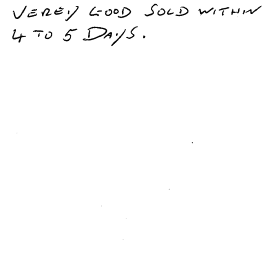 VEREY GOOD SOLD WITHIN
4 TO 5 DAYS.